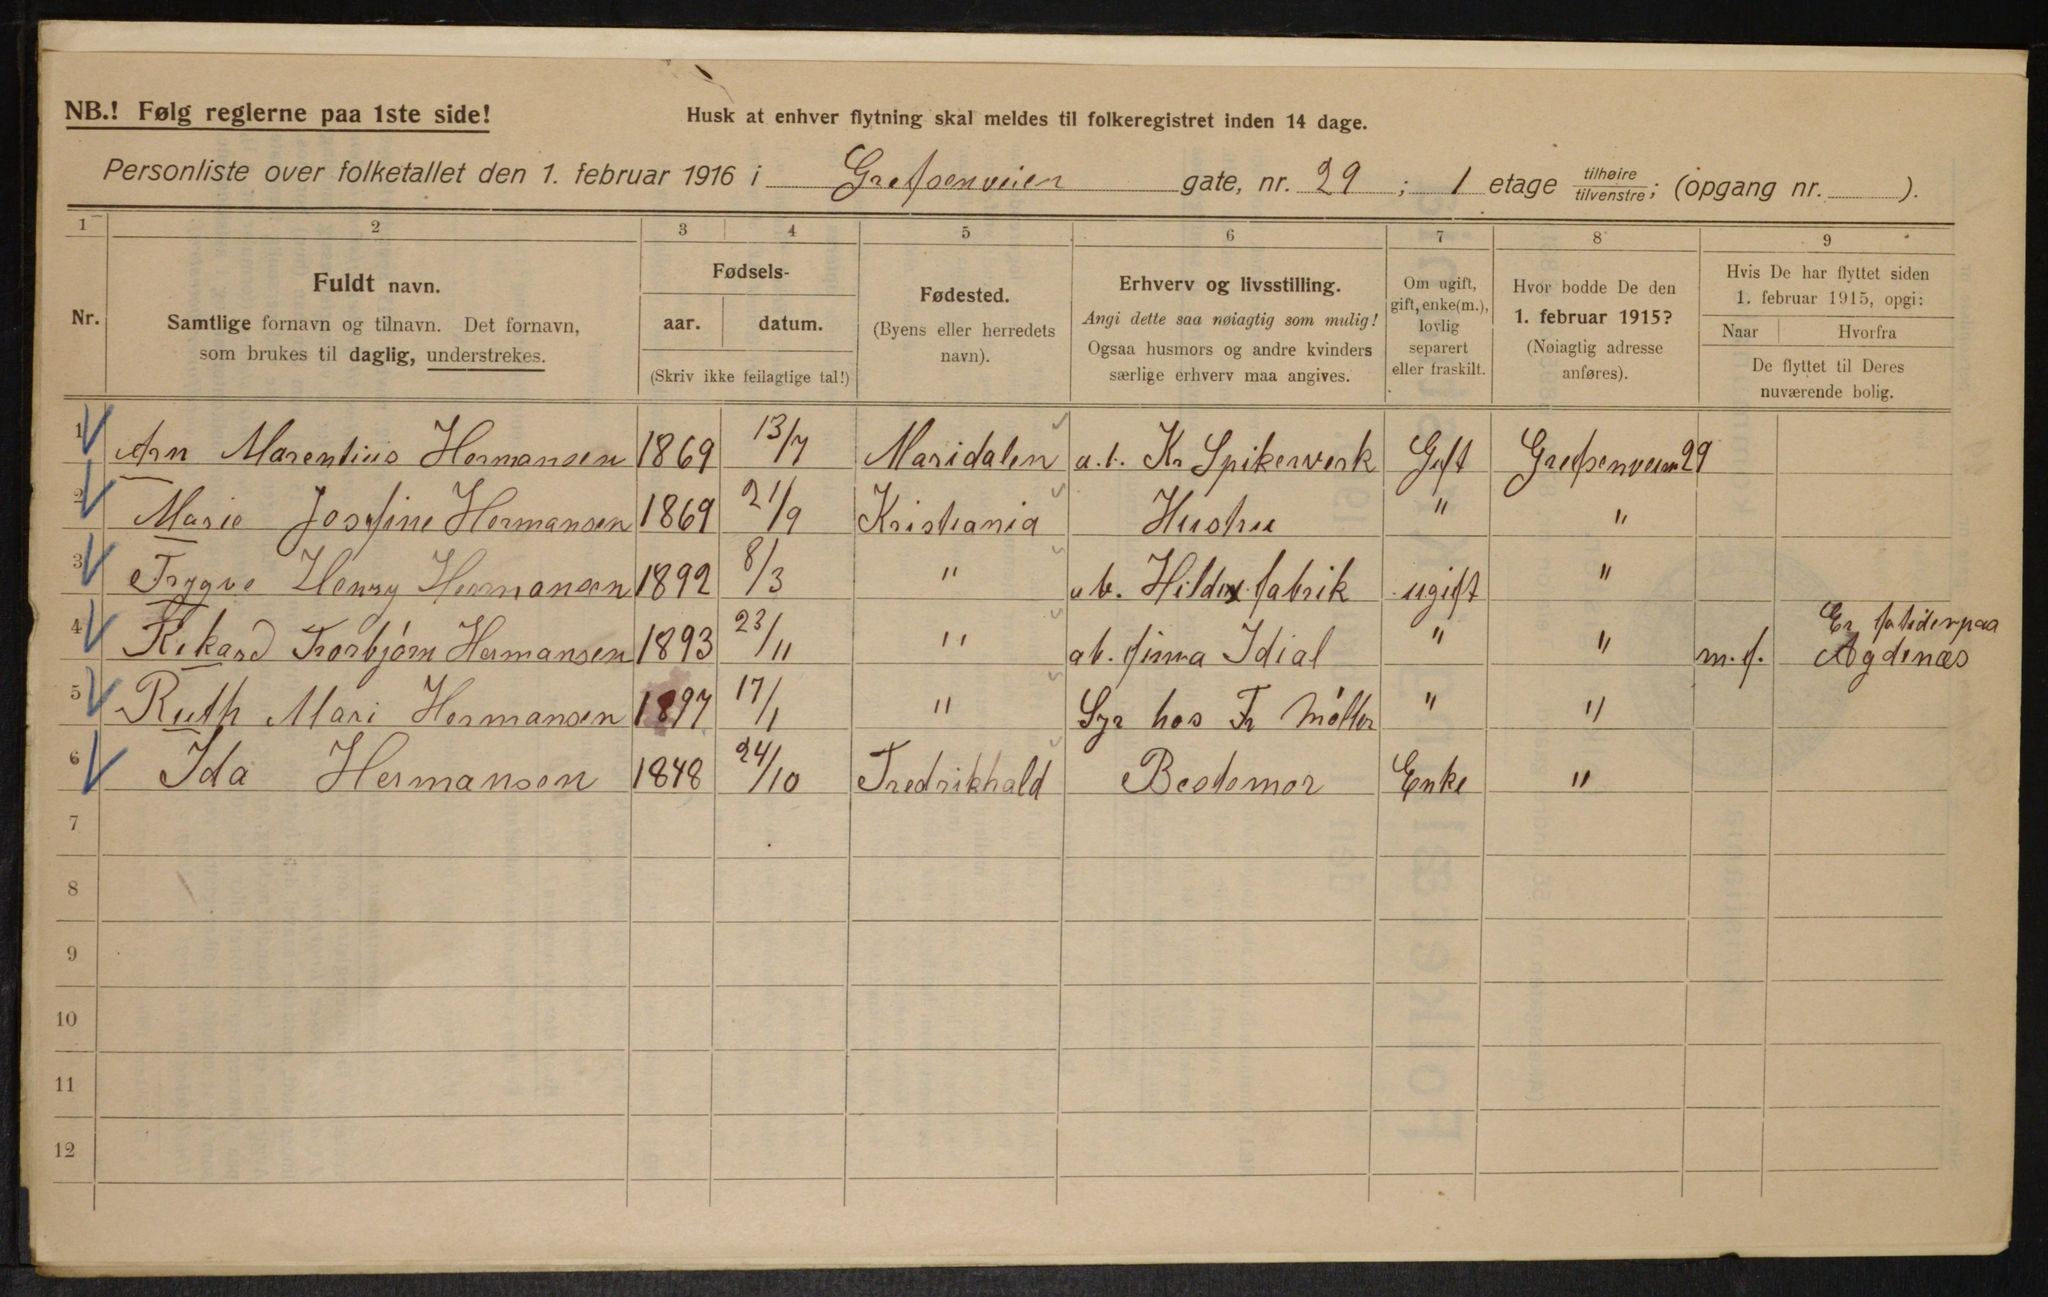 NB.! Følg reglerne paa 1ste side!
Husk at enhver flytning skal meldes til folkeregistret inden 14 dage.
Personliste over folketallet den 1. februar 1916 i Grefsenveien gate, nr. 29 ; 1 etage tilhøire / tilvenstre; (opgang nr. ).
1 2 3 4 5 6 7 8 9
Nr.
Fuldt navn.
Samtlige fornavn og tilnavn. Det fornavn,
som brukes til daglig, understrekes.
Fødsels-
aar. datum.
(Skriv ikke feilagtige tal!)
Fødested.
(Byens eller herredets
navn).
Erhverv og livsstilling.
Angi dette saa nøiagtig som mulig!
Ogsaa husmors og andre kvinders
særlige erhverv maa angives.
Om ugift,
gift, enke(m.),
lovlig
separert
eller fraskilt.
Hvor bodde De den
1. februar 1915?
(Nøiagtig adresse
anføres).
Hvis De har flyttet siden
1. februar 1915, opgi:
Naar Hvorfra
De flyttet til Deres
nuværende bolig.
1 Arn Marentius Hermansen 1869 13/7 Maridalen a.b. Kr Spikerverk Gift Grefsenveien 29
2 Marie Josefine Hermansen 1869 21/9 Kristiania Hustru " "
3 Trygve Henry Hermansen 1892 8/3 " ab. fabrik ugift "
4 Rikard Thorbjørn Hermansen 1893 23/11 " ab. firma Idial " " m.f. Er paa Agdenæs
5 Ruth Mari Hermansen 1897 17/1 " Syr hos Fr Møller " "
6 Ida Hermansen 1848 24/10 Fredrikhald Bestemor Enke "
7
8
9
10
11
12